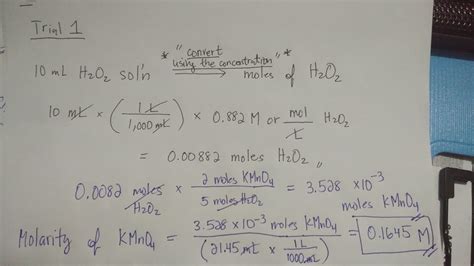 Trial 1
* "convert using the concentration" *
10 mL H₂O₂ sol'n → moles of H₂O₂
10 mL × (1 L / 1,000 mL) × 0.882 M or mol/L H₂O₂
= 0.00882 moles H₂O₂ //
0.0082 moles H₂O₂ × 2 moles KMnO₄ / 5 moles H₂O₂ = 3.528 × 10⁻³ moles KMnO₄
Molarity of KMnO₄ = 3.528 × 10⁻³ moles KMnO₄ / (21.45 mL × 1 L / 1000 mL) = 0.1645 M